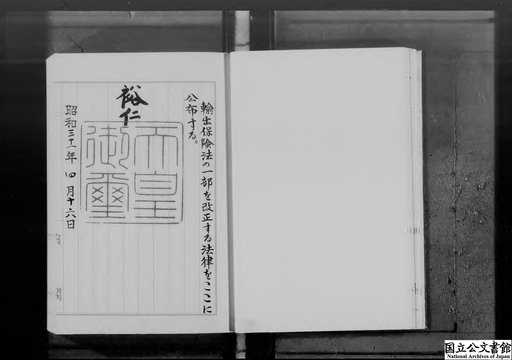 輸出保險法の一部を改正する法律をここに
公布する。
裕仁
天皇
御璽
昭和三十一年四月十六日
国立公文書館
National Archives of Japan